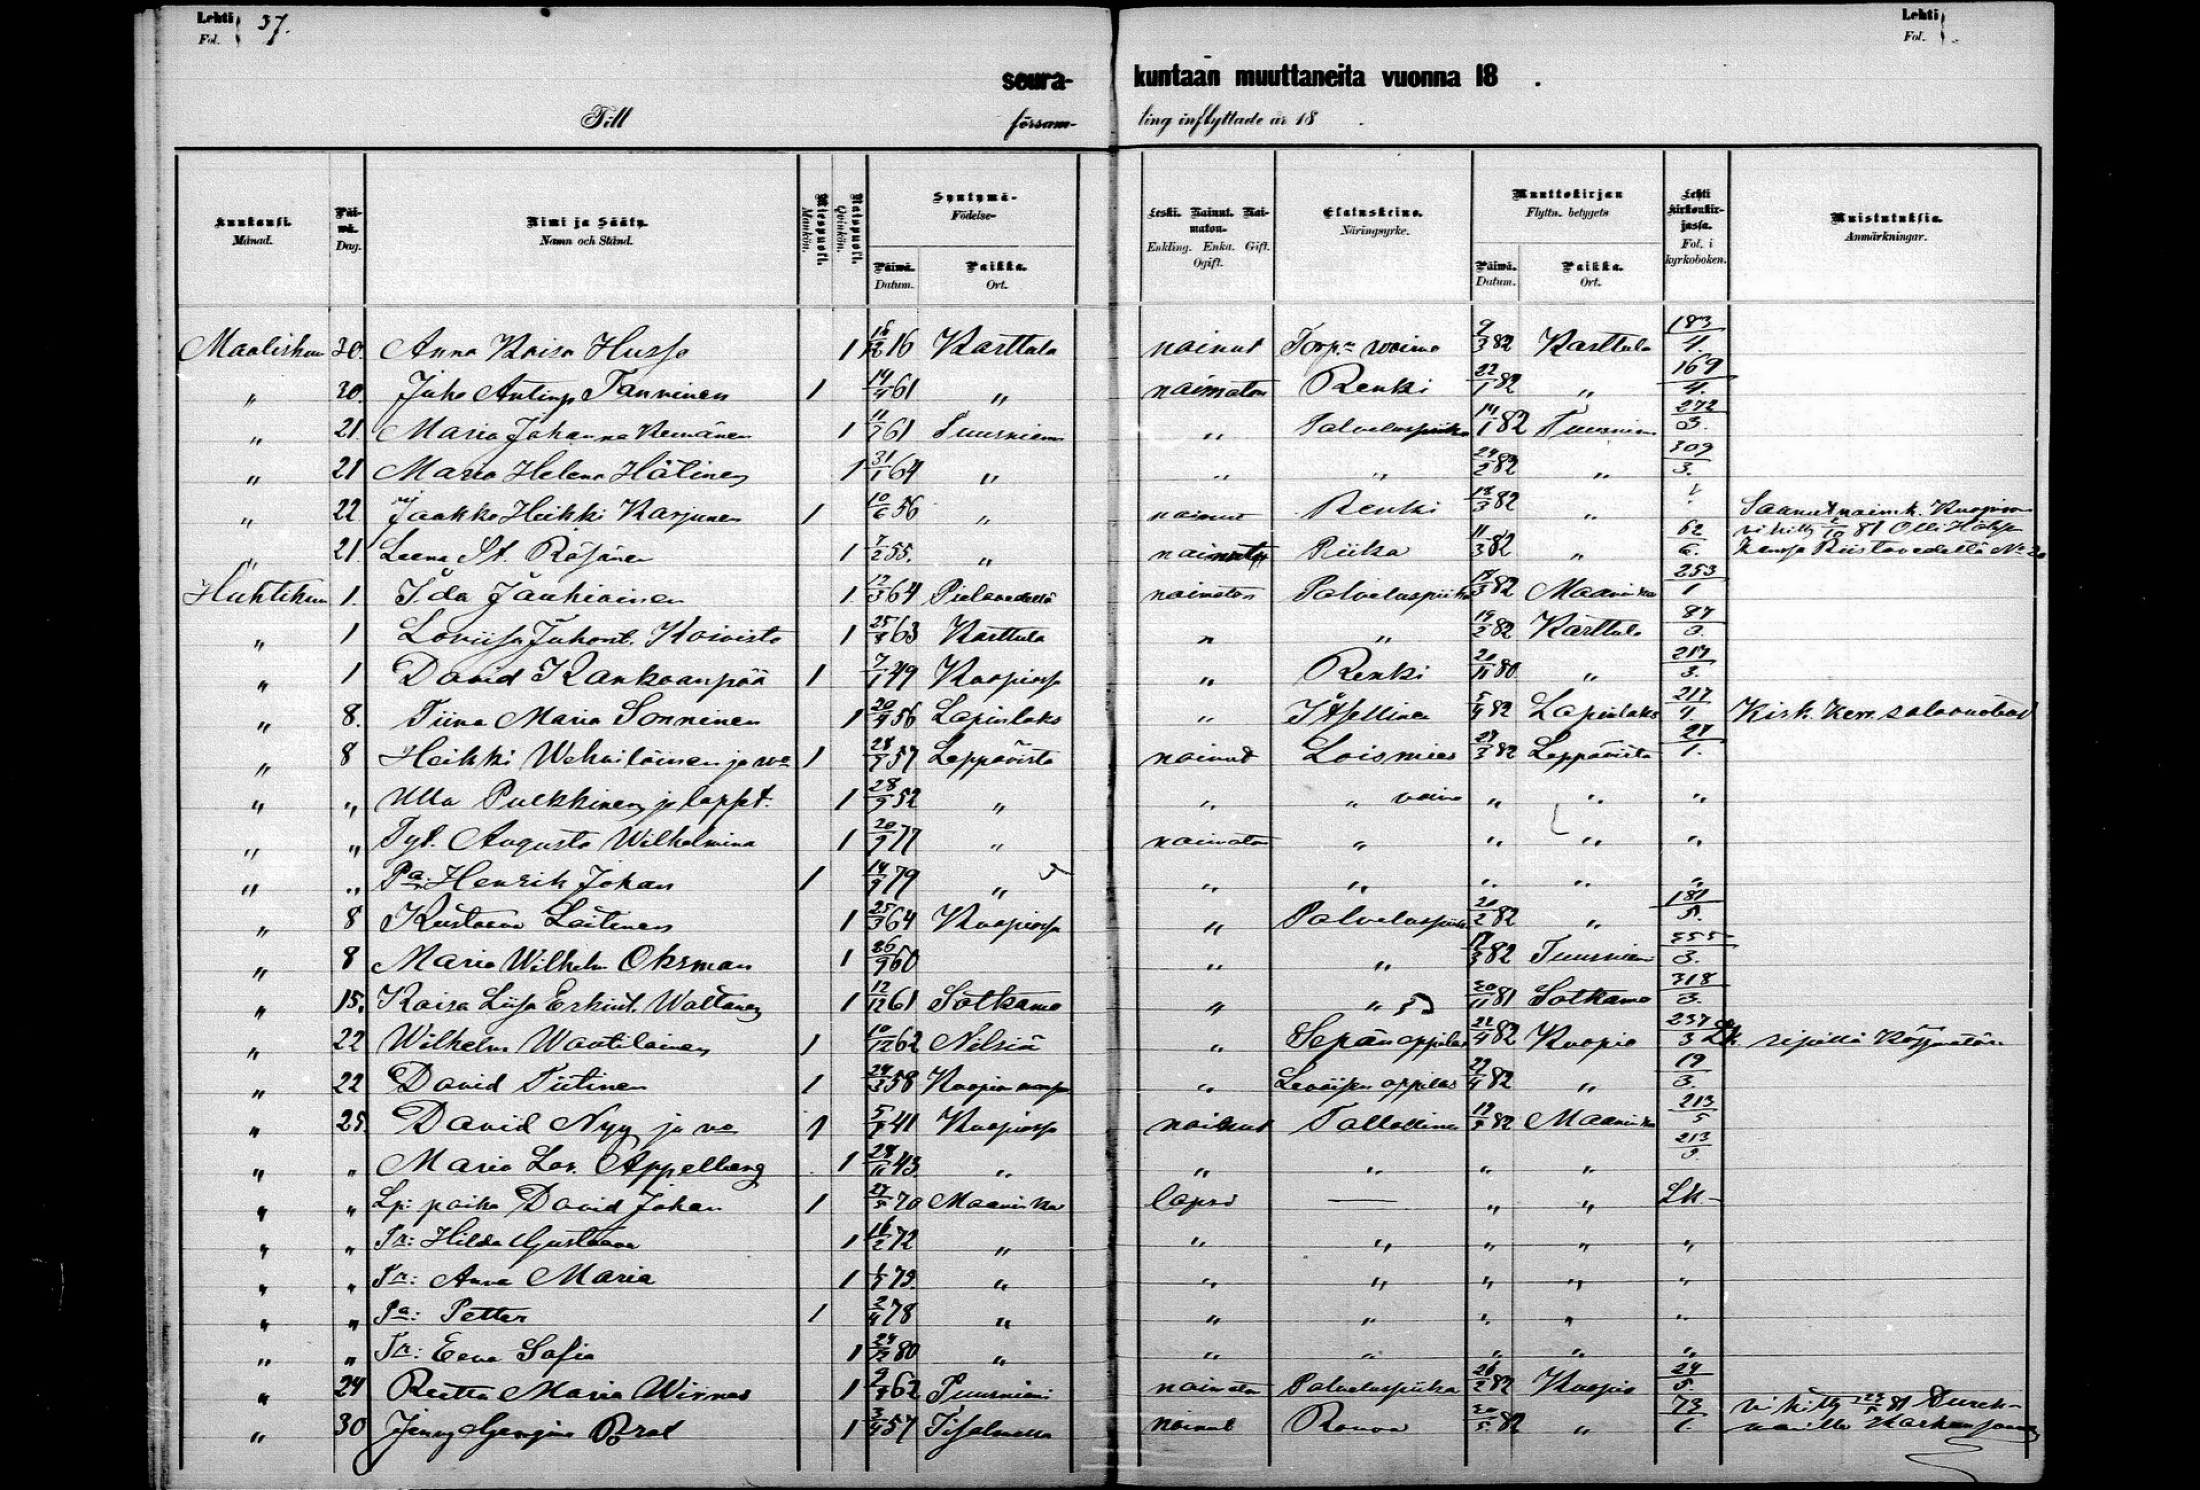 Lehti Fol. } 37.
Lehti Fol. }
seura- kuntaan muuttaneita vuonna 18 .
Till försam- ling inflyttade år 18 .
Kuukausi. Månad.
Päi-wä. Dag.
Nimi ja Sääty. Namn och Stånd.
Miespuoli. Mankön.
Naispuoli. Qvinkön.
Syntymä- Födelse-
Päiwä. Datum.
Paikka. Ort.
Leski. Nainut. Nai-maton.
Enkling. Enka. Gift. Ogift.
Elatuskeino. Näringsyrke.
Muuttokirjan Flyttn. betygets
Päiwä. Datum.
Paikka. Ort.
Lehti kirkonkir-jasta. Fol. i kyrkoboken.
Muistutuksia. Anmärkningar.
Maaliskuu 30. Anna Kaisa Husso 1 16/12 16 Karttula nainut Torp:n waimo 9/3 82 Karttula 183/4.
" 30. Juho Antinp. Tanninen 1 14/4 61 " naimaton Renki 22/1 82 " 169/4.
" 21. Maria Johanna 1 11/7 61 Tuusniemi " Palveluspiika 14/1 82 Tuusniemi 272/3.
" 21 Maria Helena Hätinen 1 31/1 64 " " " 24/2 82 " 309/3.
" 22 Jaakko Heikki Karjunen 1 10/6 56 " nainut Renki 18/3 82 " Saanut naimk. Kuopion
" 21. Leena St. Räsänen 1 7/2 55. " Piika 11/3 82 " 62/6. vihitty 2/10 81 Olli
kanssa Riistavedeltä No 20
Huhtikuu 1. Ida Jauhiainen 1 12/3 64 Pielavedellä naimaton Palveluspiika 18/3 82 Maaninka 253/1
" 1 Loviisa Juhont. Koivisto 1 25/8 63 Karttula " " 19/2 82 Karttula 87/3.
" 1 David Kankaanpää 1 7/1 49 Kuopiossa " Renki 20/11 80 " 217/3.
" 8. Tiina Maria Sonninen 1 20/4 56 Lapinlaks " Itsellinen 5/4 82 Lapinlaks 217/4. Kirk. ken. salavuoteud
" 8 Heikki Wehviläinen ja wo 1 28/7 57 Leppävirta nainut Loismies 28/3 82 Leppävirta 27/1.
" " Ulla Pulkkinen ja lapset. 1 28/9 52 " " " vaimo " " "
" " Tyt. Augusta Wilhelmina 1 20/9 77 " naimaton " " " "
" " Pa: Henrik Johan 1 14/9 79 " " " " " "
" 8 Kustaava Laitinen 1 25/3 64 Kuopiossa " Palveluspiika 20/2 82 " 181/5.
" 8 Maria Wilhelm. Oksman 1 26/9 60 " " 17/3 82 Tuusniemi 255/3.
" 15. Kaisa Liisa Erkint. Waltanen 1 12/12 61 Sotkamo " " 30/11 81 Sotkamo 318/3.
" 22 Wilhelm Wautilainen 1 10/12 62 Nilsiä " Sepän oppilas 21/4 82 Kuopio 237/3 Lk ripillä käymätön
" 22 David Tiitinen 1 24/3 58 Kuopion maas " oppilas 22/4 82 " 19/3.
" 25. David Nyy ja wo 1 5/8 41 Kuopiossa nainut Talollinen 19/3 82 Maaninka 213/5
" " Maria Lov. Appelberg 1 28/11 43 " " " " " 213/5.
" " Lp: poika David Johan 1 27/5 70 Maaninka lapsi — " " Lk-
" " Tr: Hilda Gustaava 1 16/2 72 " " " " " "
" " Tr: Anna Maria 1 1/7 75. " " " " " "
" " Pa: Petter 1 2/4 78 " " " " " "
" " Tr: Eeva Sofia 1 24/12 80 " " " " " "
" 24 Reetta Maria Wirnes 1 2/8 62 Tuusniemi naimaton Palveluspiika 26/2 82 Kuopio 24/5.
" 30 Jenny Georgina 1 3/4 57 Iisalmessa nainut Rouva 30/5 82 " 73/1. vihitty 22/5 81